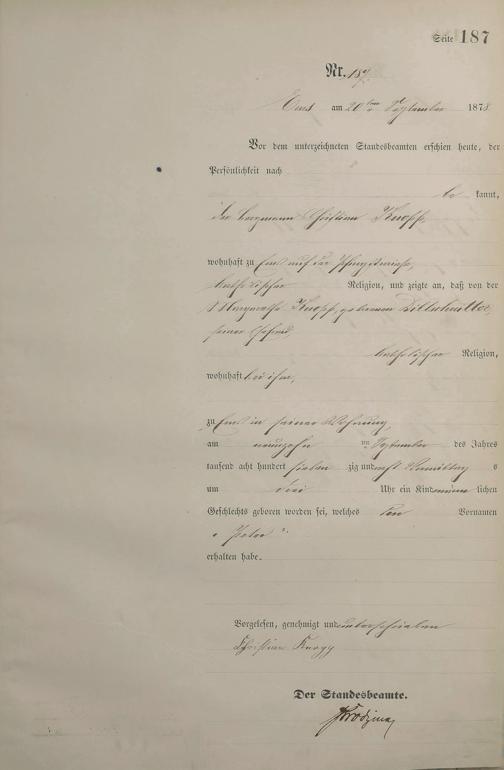 Seite 187
Nr. 187.
Ems am 20ten September 1878
Vor dem unterzeichneten Standesbeamten erschien heute, der
Persönlichkeit nach
be kannt,
der Bergmann Christian Knopp,
wohnhaft zu Ems auf der
katholischer Religion, und zeigte an, daß von der
Margaretha Knopp, geborenen
seiner Ehefrau,
katholischer Religion,
wohnhaft bei ihm,
zu Ems in seiner Wohnung,
am neunzehn ten September des Jahres
tausend acht hundert sieben zig und acht Vormittag s
um drei Uhr ein Kind männ lichen
Geschlechts geboren worden sei, welches den Vornamen
„ Peter “
erhalten habe.
Vorgelesen, genehmigt und unterschrieben
Christian Knopp
Der Standesbeamte.